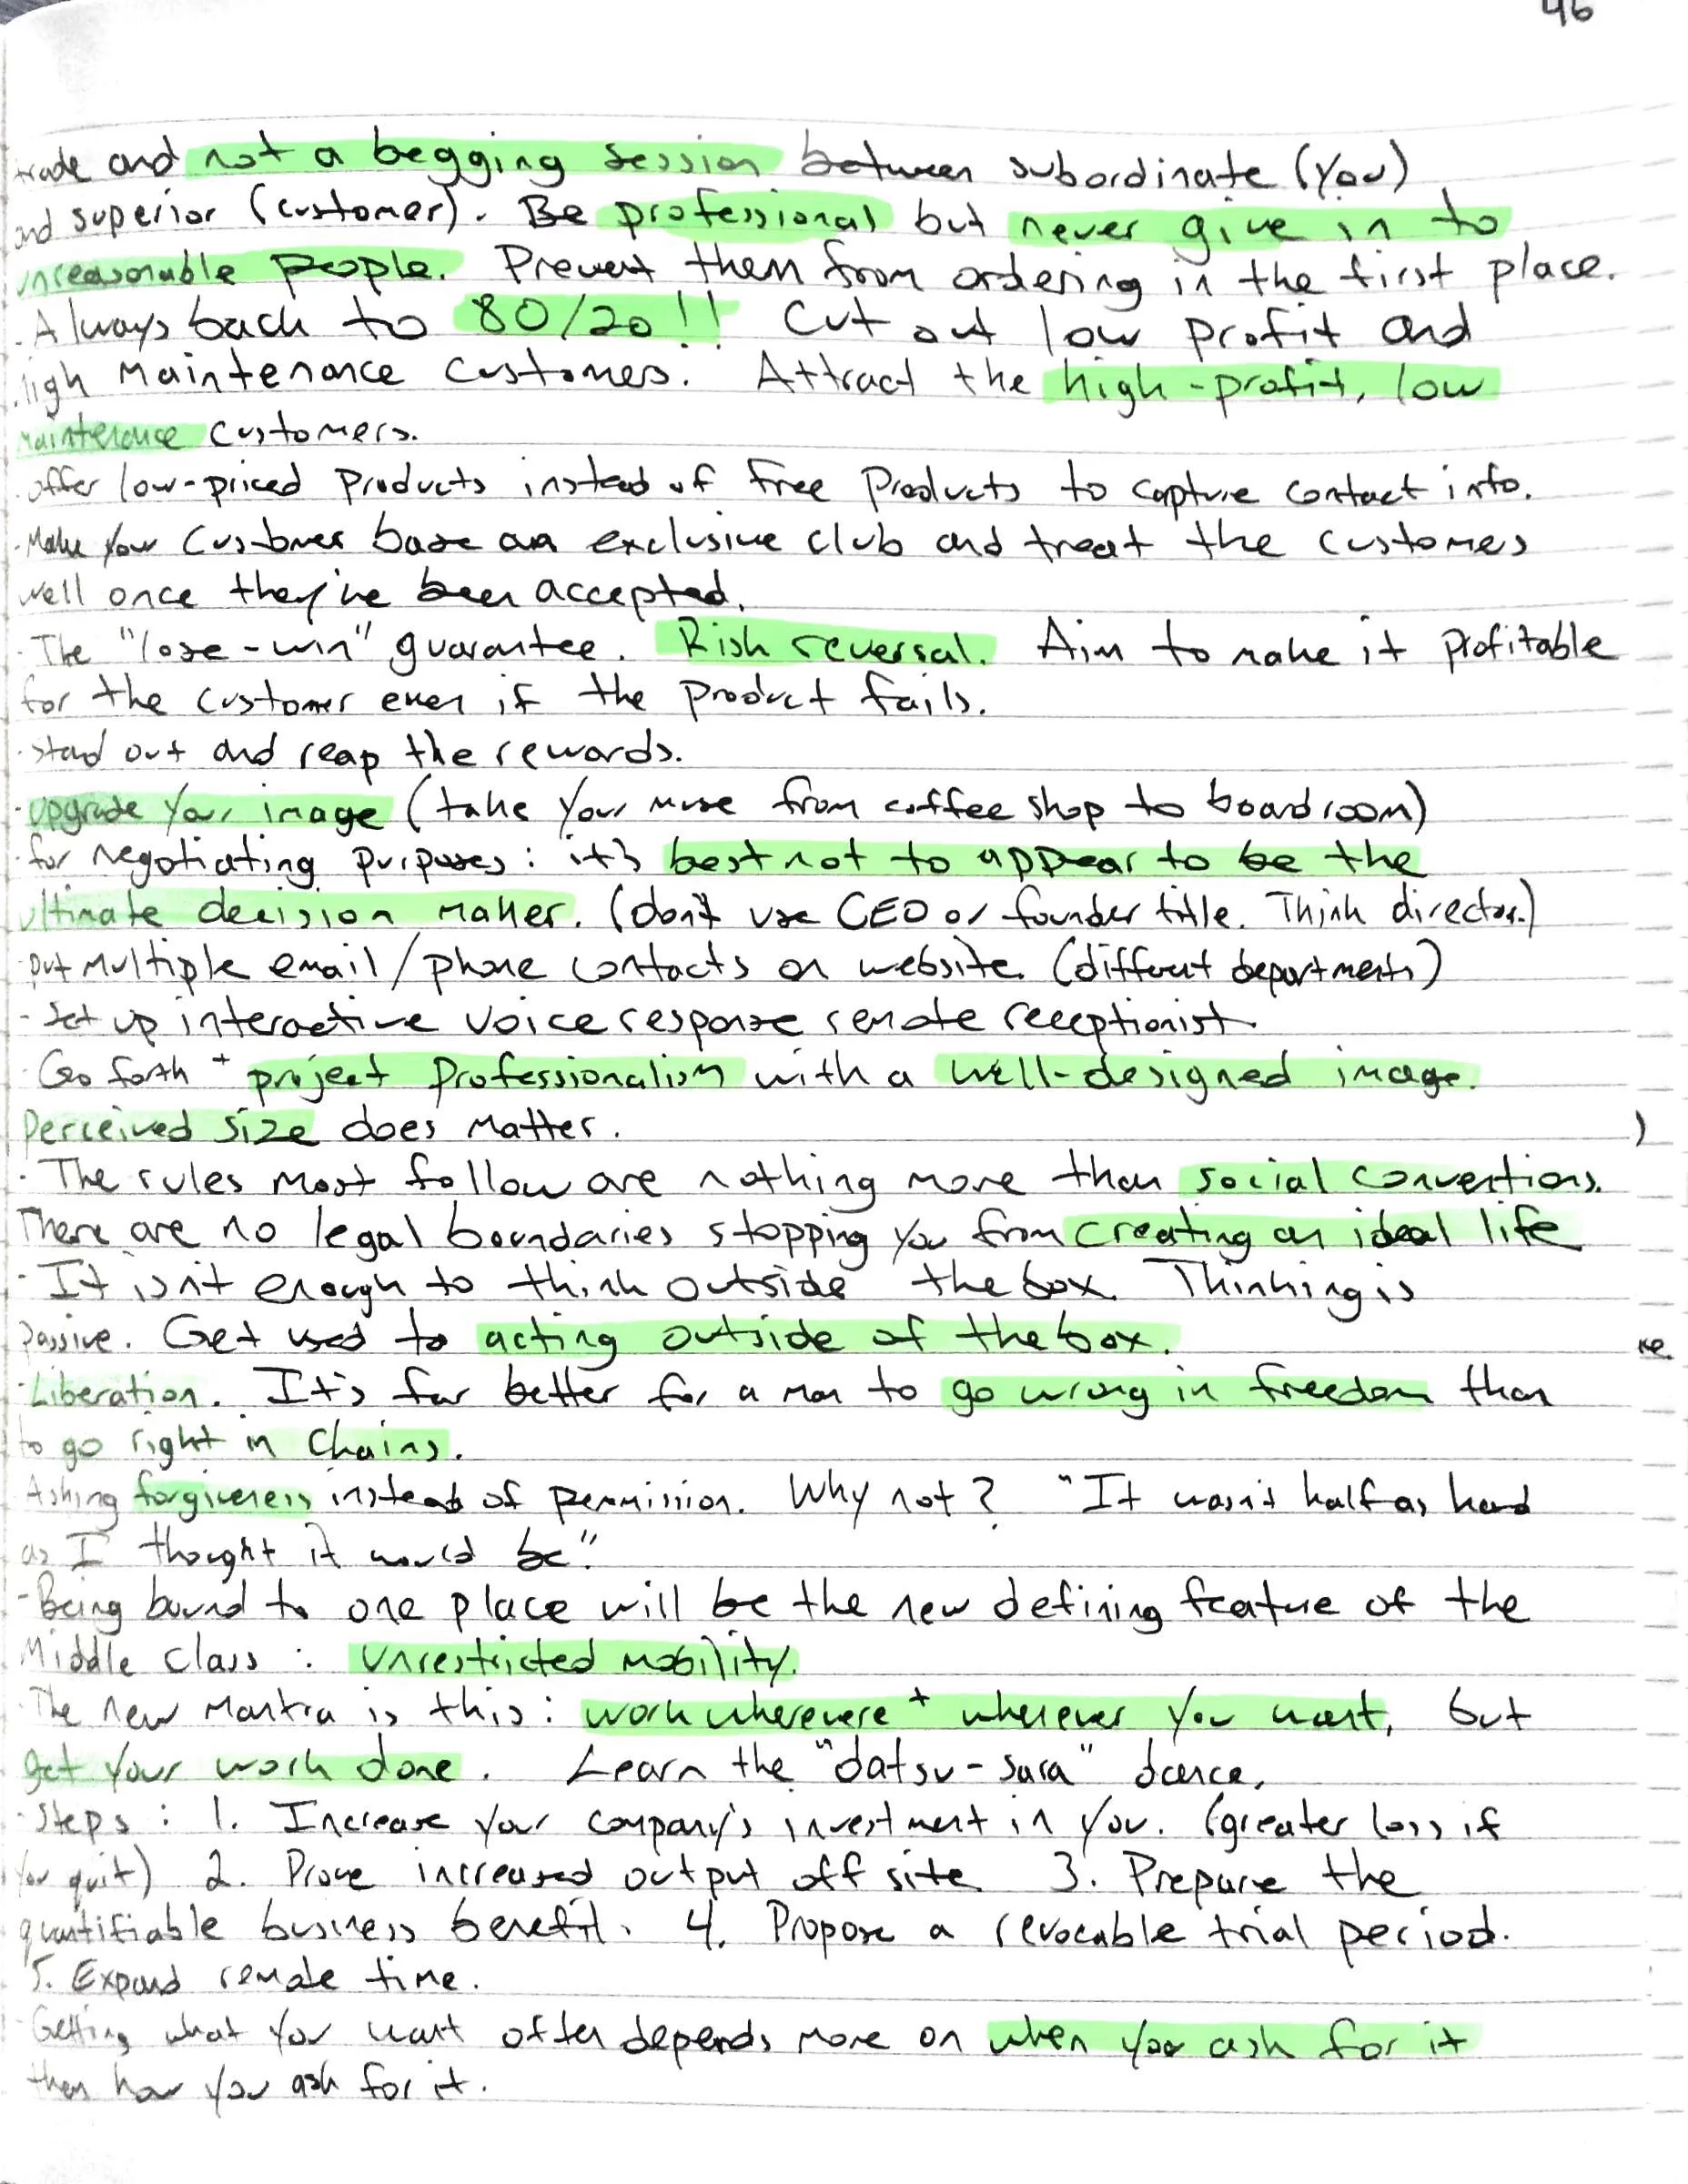 46
trade and not a begging session between subordinate (you)
and superior (customer). Be professional but never give in to
unreasonable people. Prevent them from ordering in the first place.
- Always back to 80/20!! Cut out low profit and
high maintenance customers. Attract the high-profit, low
maintenance customers.
- offer low-priced products instead of free products to capture contact info.
- Make your customer base an exclusive club and treat the customers
well once they've been accepted.
- The "lose-win" guarantee. Risk reversal. Aim to make it profitable
for the customer even if the product fails.
- stand out and reap the rewards.
- Upgrade your image (take your muse from coffee shop to boardroom)
- for negotiating purposes: it's best not to appear to be the
ultimate decision maker. (don't use CEO or founder title. Think director.)
- put multiple email/phone contacts on website. (different departments)
- Set up interactive voice response remote receptionist.
- Go forth + project professionalism with a well-designed image.
Perceived size does matter.
)
- The rules most follow are nothing more than social conventions.
There are no legal boundaries stopping you from creating an ideal life
- It isn't enough to think outside the box. Thinking is
passive. Get used to acting outside of the box.
re.
- Liberation. It's far better for a man to go wrong in freedom than
to go right in chains.
Asking forgiveness instead of permission. Why not? "It wasn't half as hard
as I thought it would be"
- Being bound to one place will be the new defining feature of the
Middle class: unrestricted mobility.
- The new mantra is this: work wherevere + whenever you want, but
get your work done. Learn the "datsu-sara" dance.
- Steps: 1. Increase your company's investment in you. (greater loss if
you quit) 2. Prove increased output off site. 3. Prepare the
quantifiable business benefit. 4. Propose a revocable trial period.
5. Expand remote time.
- Getting what you want often depends more on when you ask for it
then how you ask for it.